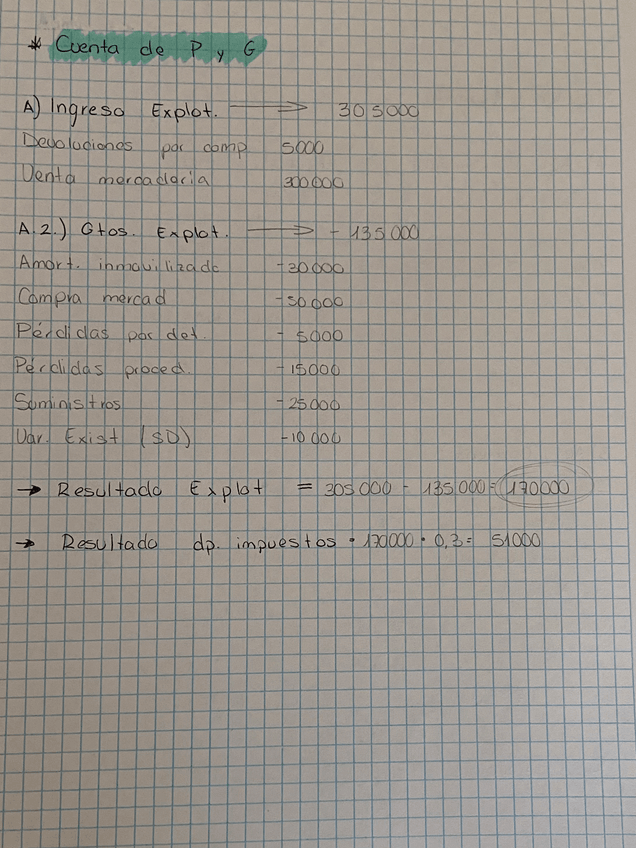 * Cuenta de P y G
A) Ingreso Explot. → 305000
Devoluciones por comp 5000
Venta mercaderia 300000
A.2.) Gtos. Explot. → - 135000
Amort. inmovilizado -30000
Compra mercad -50000
Pérdidas por det. - 5000
Pérdidas proced. - 15000
Suministros -25000
Var. Exist (SD) -10000
→ Resultado Explot = 305000 - 135000 = 170000
→ Resultado dp. impuestos · 170000 · 0,3 = 51000